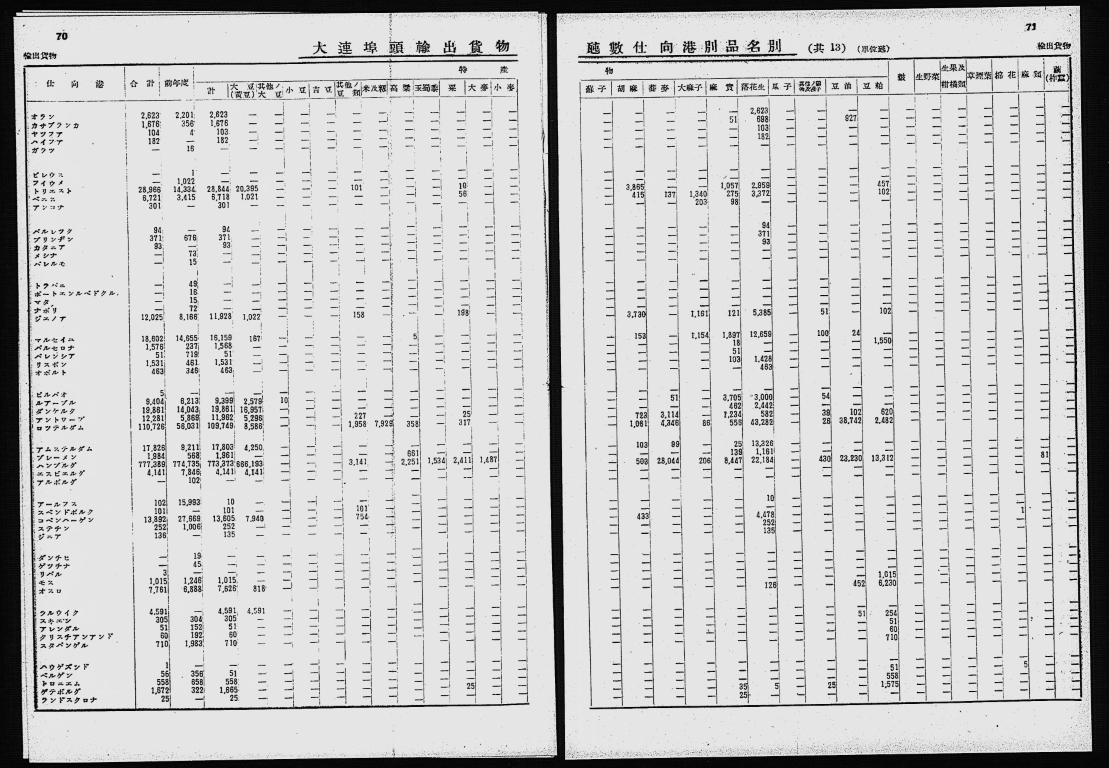 70
輸出貨物
大連埠頭輸出貨物
仕向港 合計 前年度 特産
計 大豆(黄豆) 其他ノ大豆 小豆 吉豆 其他ノ豆類 米及籾 高粱 玉蜀黍 粟 大麥 小麥
オラン 2,623 2,201 2,623
カサブランカ 1,676 356 1,676
ヤツフア 104 4 103
ハイフア 182 — 182
ガラツ — 16
ピレウス — 1
フイウメ — 1,022
トリエスト 28,966 14,334 28,844 20,395 101 10
ベニス 6,721 3,415 6,718 1,021 56
アンコナ 301 — 301
バルレツタ 94 — 94
ブリンヂシ 371 676 371
カタニア 93 — 93
メシナ — 73
パレルモ — 15
トラパニ — 49
ポートエンペドクル — 16
マタ — 15
ナポリ — 72
ジエノア 12,025 8,166 11,928 1,022 158 198
マルセイユ 18,602 14,655 16,159 167 5
バルセロナ 1,576 237 1,568
バレンシア 51 719 51
リスボン 1,531 461 1,531
オポルト 463 346 463
ビルバオ 5
ルアーブル 9,404 6,213 9,399 2,579 10
ダンケルク 19,861 14,043 19,861 16,957
アントワープ 12,281 5,869 11,962 5,296 227 25
ロツテルダム 110,726 56,031 109,749 8,586 1,958 7,929 358 317
アムステルダム 17,826 8,211 17,803 4,250
ブレーメン 1,984 568 1,961 661
ハンブルグ 777,389 774,735 773,373 666,193 3,141 2,251 1,534 2,411 1,487
エスビエルグ 4,141 7,846 4,141 4,141
アルボルグ — 102
アールフス 102 15,993 10
スベンドボルク 101 — 101 101
コペンハーゲン 13,892 27,669 13,605 7,940 754
ステチン 252 1,006 252
ジニア 136 — 135
ダンチヒ — 19
ゲツチナ — 45
リバル 3
モス 1,015 1,246 1,015
オスロ 7,761 6,888 7,626 816
ラルウイク 4,591 — 4,591 4,591
スキエン 305 304 305
アレンダル 51 152 51
クリスチアンアンド 60 192 60
スタバンゲル 710 1,983 710
ハウゲスンド 1
ベルゲン 56 356 51
トロニエム 558 658 558
ゲテボルグ 1,672 322 1,665 25
ランドスクロナ 25 — 25
71
輸出貨物
噸數仕向港別品名別 (共13) (單位瓲)
物
蘇子 胡麻 蕎麥 大麻子 麻實 落花生 瓜子 豆油 豆粕 生野菜 生果及柑橘類 草煙葉 棉花 麻類
2,623
51 698 927
103
182
3,865 1,057 2,959 457
415 137 1,340 275 3,372 102
203 98
94
371
93
3,730 1,161 121 5,385 51 102
153 1,154 1,897 12,659 100 24
18 1,550
51
103 1,428
463
51 3,705 3,000 54
462 2,442
723 3,114 7,234 582 39 102 620
1,061 4,346 86 559 43,282 28 38,742 2,482
103 99 25 13,326
139 1,161
503 28,044 206 8,447 22,184 430 23,230 13,312 81
10
1
433 4,478
252
135
1,015
126 452 6,230
51 254
51
60
710
51 5
558
35 5 25 1,575
25